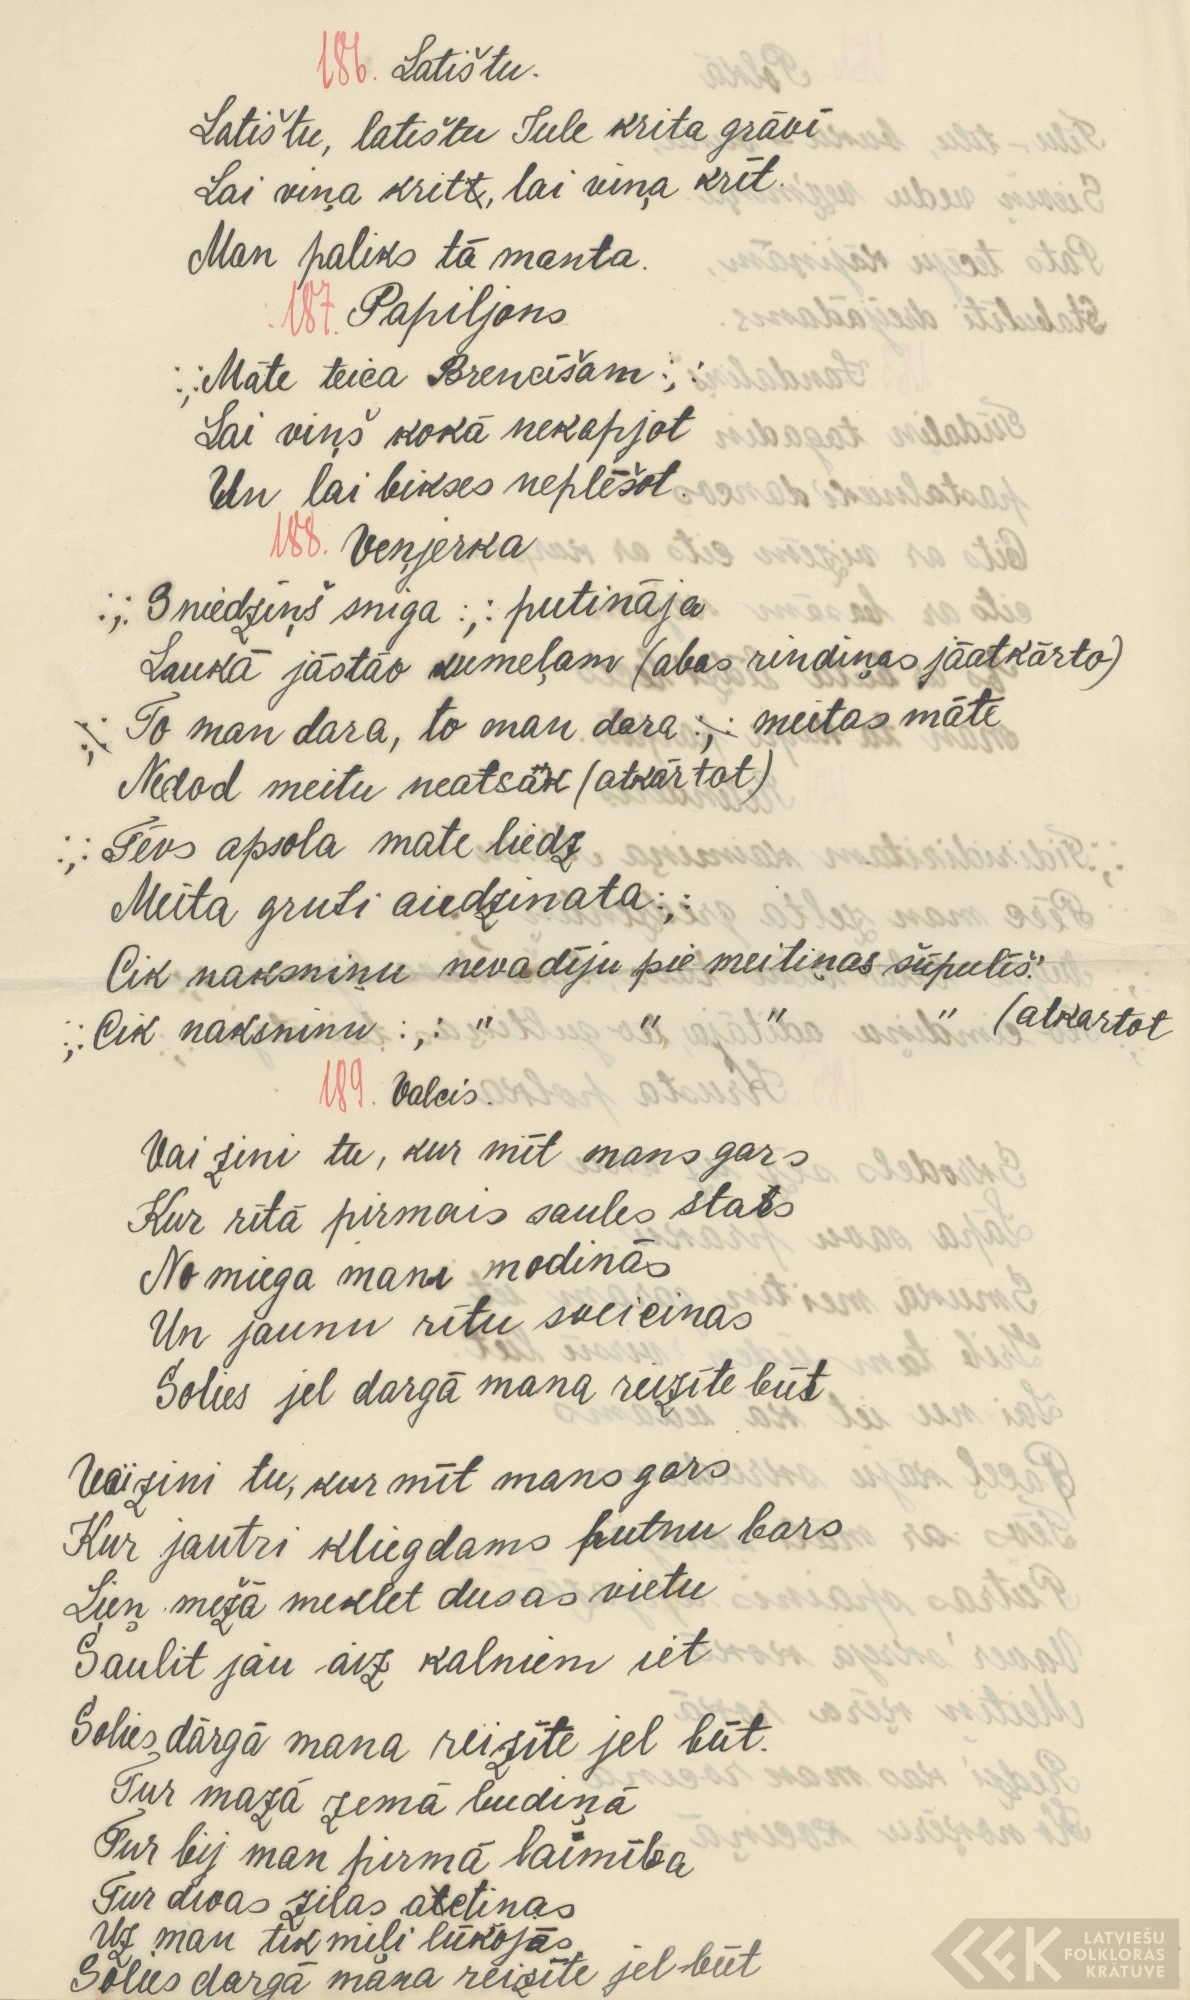 186. Latištu.
Latištu, latištu Jule krita grāvī
Lai viņa kritt, lai viņa krīt.
Man paliks tā manta.
187. Papiljons
:,: Māte teica Brencīšam :,:
Lai viņš kokā nekapjot
Un lai bikses neplēšot.
188. Veņjerka
:,: Sniedziņš sniga :,: putināja
Laukā jāstāv kumeļam (abas rindiņas jāatkārto)
:,: To man dara, to man dara :,: meitas māte
Nedod meitu neatsāk (atkārtot)
:,: Tēvs apsola mate liedz
Meita gruti aiedzinata :,:
Cik naksniņu nevadīju pie meitiņas šūpulīš."
:,: Cik naksninu :,: " " " " (atkartot
189. Valcis.
Vai zini tu, kur mīt mans gars
Kur rītā pirmais saules stars
No miega mani modinās
Un jaunu rītu sveicinas
Solies jel dargā mana reizīte būt
Vai zini tu, kur mīt mans gars
Kur jautri kliegdams putnu bars
Lien mežā meklet dusas vietu
Saulit jau aiz kalniem iet
Solies dārgā mana reizīte jel būt.
Tur mazā zemā budiņā
Tur bij man pirmā laimība
Tur divas zilas actinas
Uz man tik miļi lūkojās
Solies dargā mana reizīte jel būt
LATVIEŠU
FOLKLORAS
KRĀTUVE